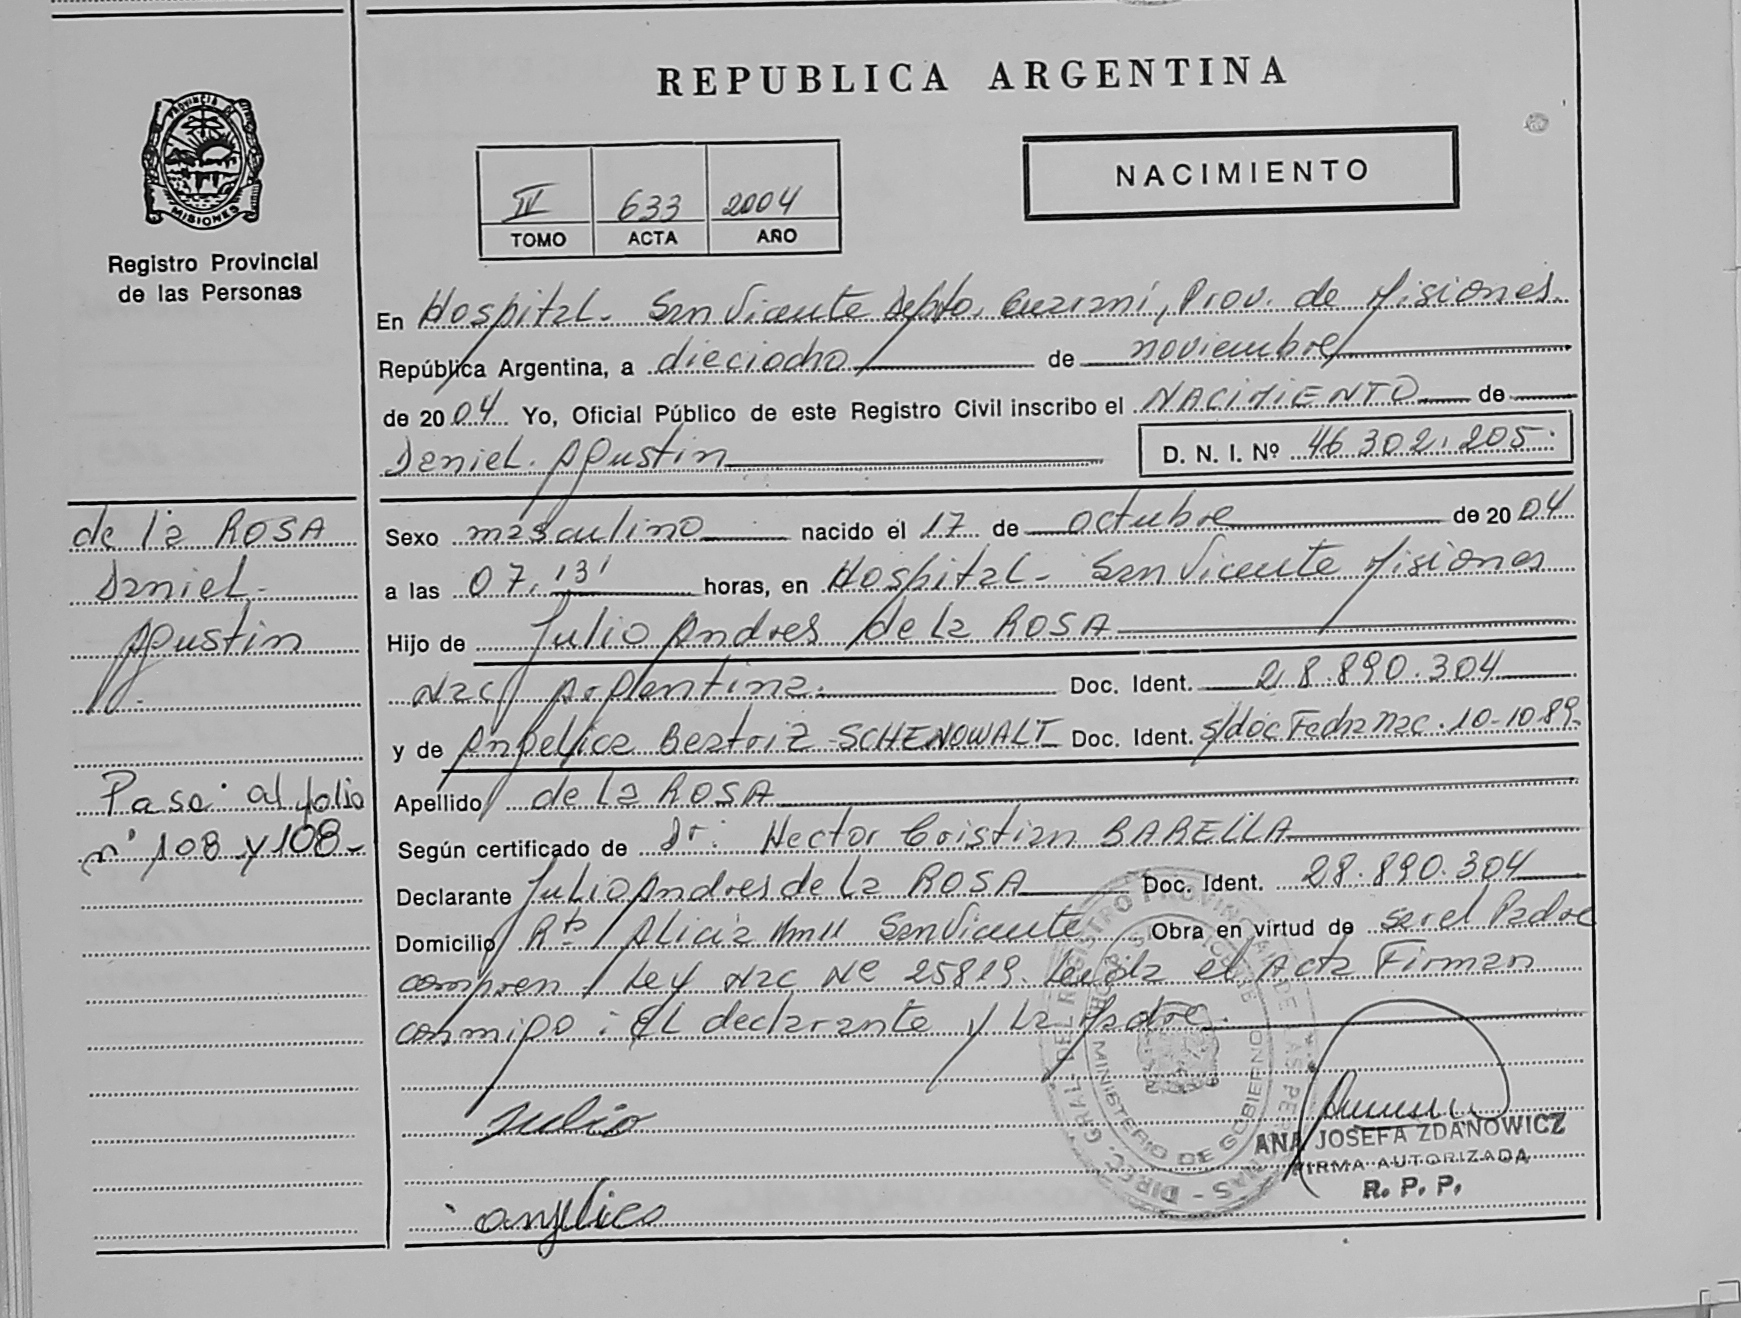 REPUBLICA ARGENTINA
PROVINCIA DE MISIONES
Registro Provincial
de las Personas
II 633 2004
TOMO ACTA AÑO
NACIMIENTO
En Hospital. San Vicente Depto. Guaraní, Prov. de Misiones
República Argentina, a dieciocho de noviembre
de 2004 Yo, Oficial Público de este Registro Civil inscribo el NACIMIENTO de
Daniel. Agustin
D. N. I. Nº 46.302.205.
de la ROSA
Daniel.
Agustin
Pasa al folio
nº 108 y 108
Sexo masculino nacido el 17 de octubre de 2004
a las 07,13' horas, en Hospital - San Vicente Misiones
Hijo de Julio Andres de la ROSA
Nac Argentina. Doc. Ident. 28.890.304
y de Angelica Beatriz SCHENOWALT Doc. Ident. s/doc Fecha nac. 10-10-89
Apellido de la ROSA
Según certificado de Dr: Hector Cristian BARELLA
Declarante Julio Andres de la ROSA Doc. Ident. 28.890.304
Domicilio Alicia San Vicente Obra en virtud de ser el Padre
Ley Nac Nº 25819. Leida el Acta Firman
conmigo: el declarante y la Madre.
Julio
angelica
DIREC. GRAL. DEL REGISTRO PROVINCIAL DE LAS PERSONAS
MINISTERIO DE GOBIERNO
ANA JOSEFA ZDANOWICZ
FIRMA AUTORIZADA
R. P. P.